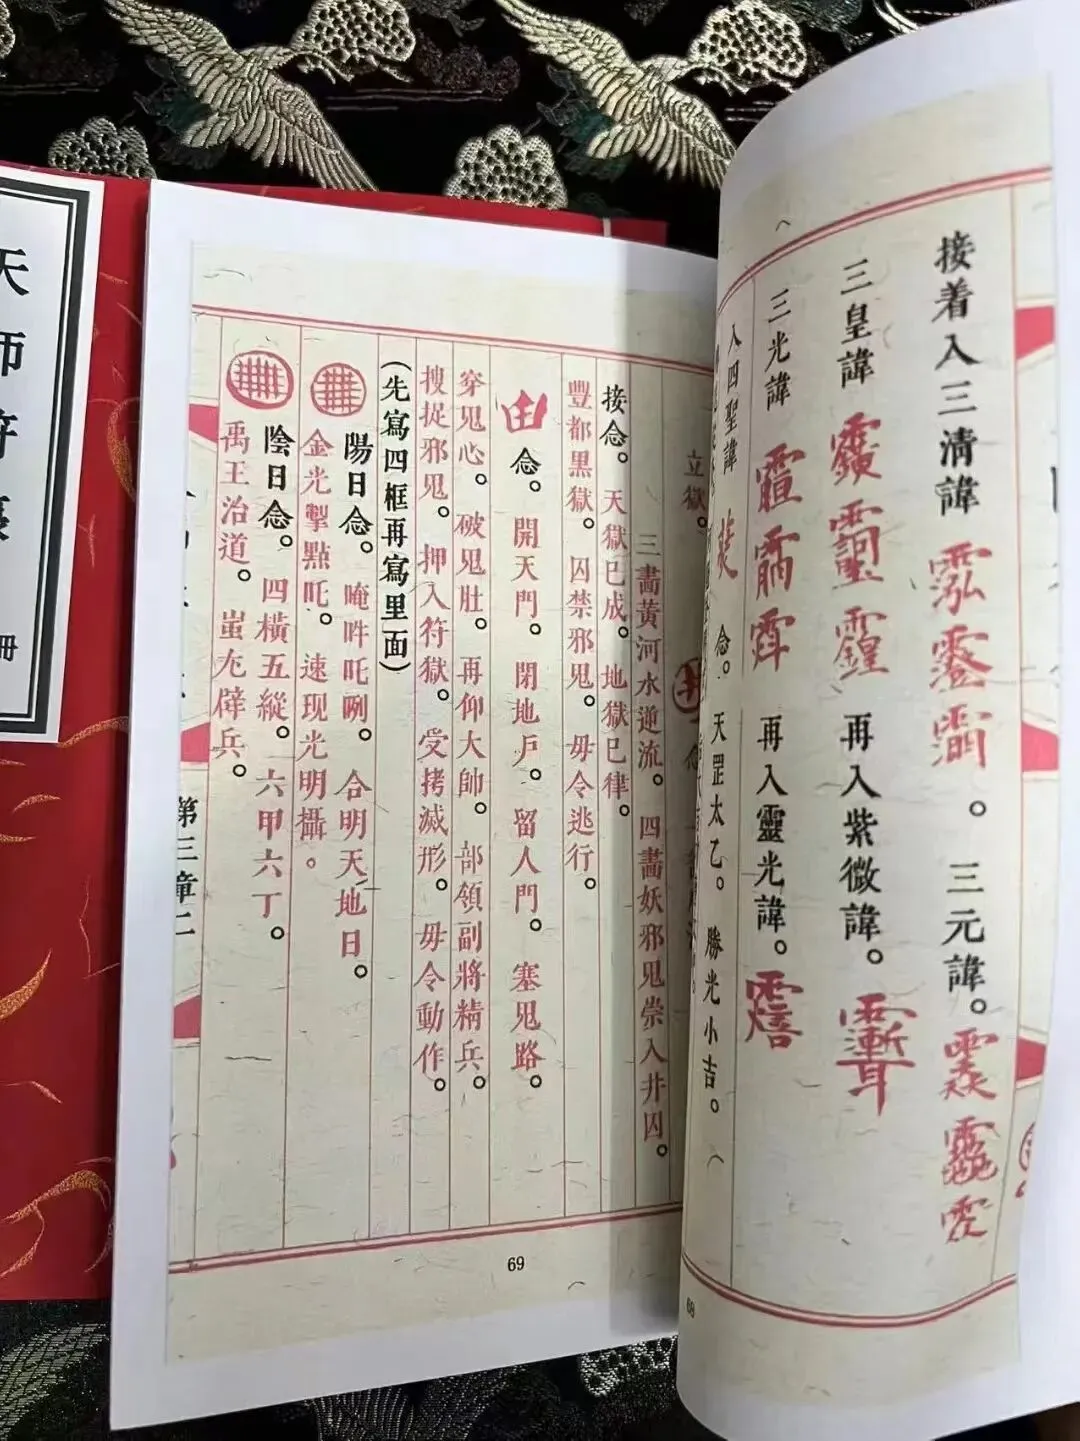 接着入三清諱 。三元諱。
三皇諱 再入紫微諱。
三光諱 再入靈光諱。
入四聖諱 念。天罡太乙。勝光小吉。
立獄。
三畵黄河水逆流。四畵妖邪鬼祟入井囚。
接念。天獄已成。地獄已律。
豐都黑獄。囚禁邪鬼。毋令逃行。
念。開天門。閉地戶。留人門。塞鬼路。
穿鬼心。破鬼肚。再仰大帥。部領副將精兵。
搜捉邪鬼。押入符獄。受拷滅形。毋令動作。
(先寫四框再寫里面)
陽日念。唵吽吒唎。合明天地日。
金光擊點吒。速现光明攝。
陰日念。四横五縱。六甲六丁。
禹王治道。蚩尤辟兵。
第三章二
69
68
天師符
冊